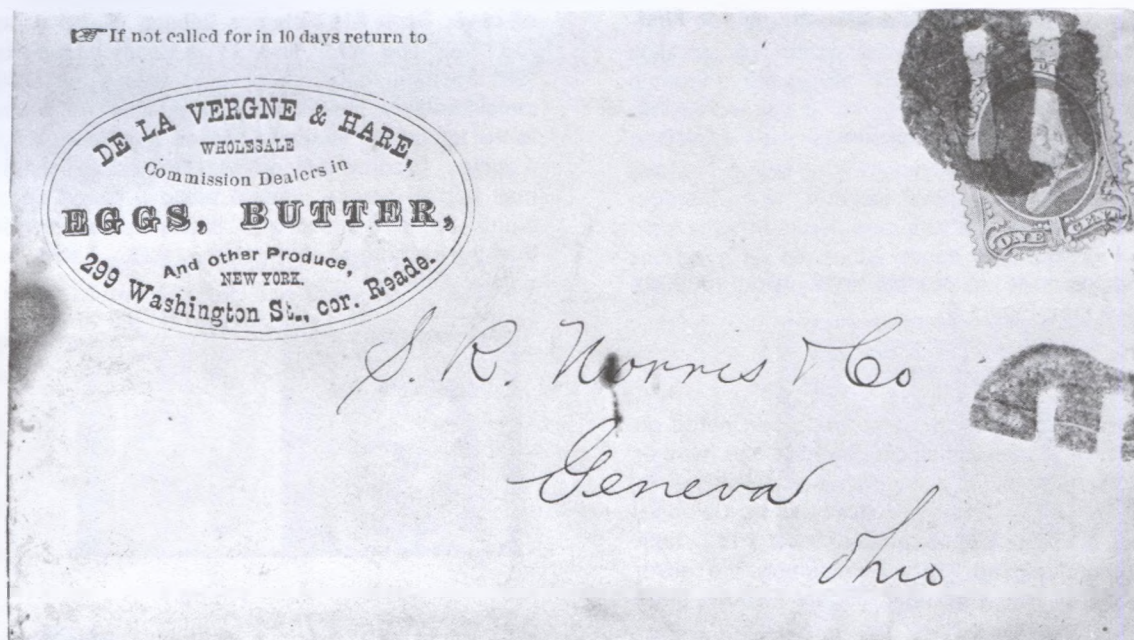 ☞ If not called for in 10 days return to
DE LA VERGNE & HARE,
WHOLESALE
Commission Dealers in
EGGS, BUTTER,
And other Produce,
NEW YORK.
299 Washington St., cor. Reade.
S. R. Norris & Co
Geneva
Ohio